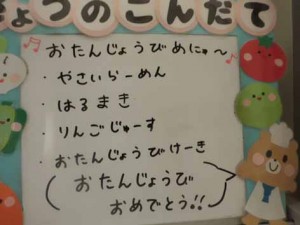 きょうのこんだて
おたんじょうびめにゅ〜
・やさいらーめん
・はるまき
・りんごじゅーす
・おたんじょうびけーき
おたんじょうび
おめでとう!!